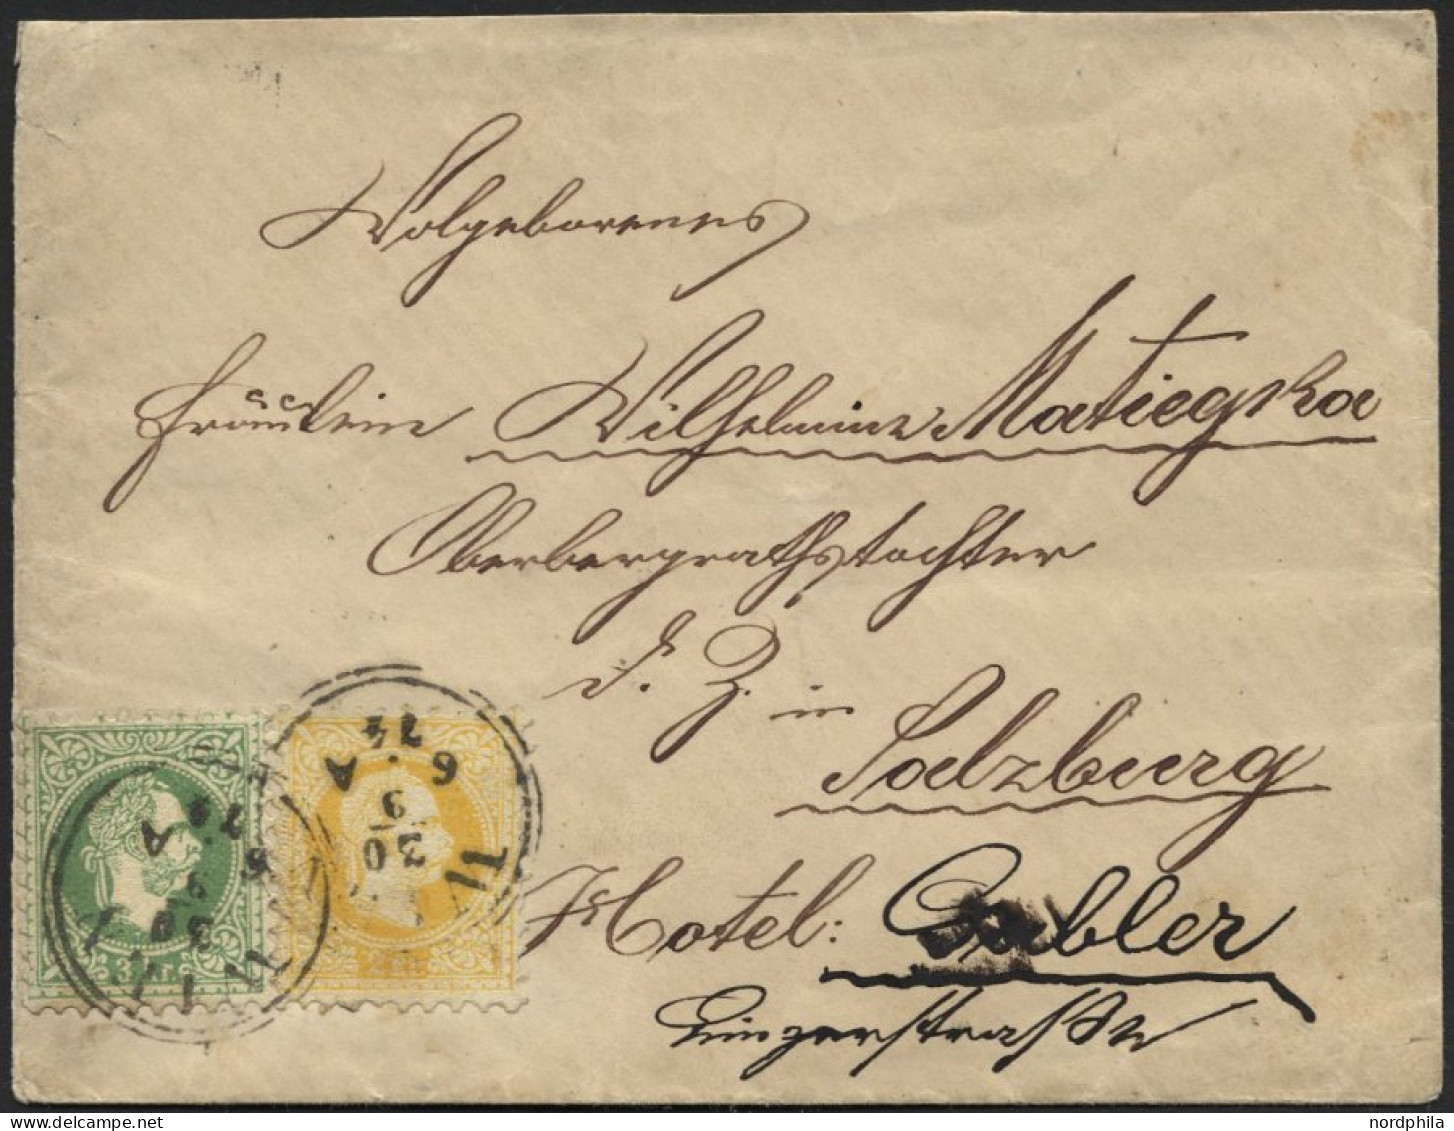 Wolgeborenes
Fräulein Wilhelmine Matiegska
Oberbergrathstochter
d. Z. in
Salzburg
Hotel: Gabler
Linzerstraße
30
9
6. A
74
30
9
6. A
3 kr.
nordphila